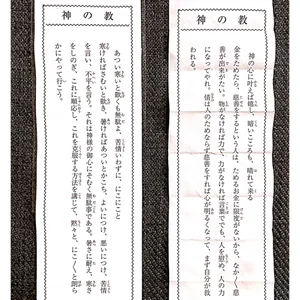 神の教
神の心に叶えば嬉し、暗いこころも、晴れて来る
金をためたら、慈善をするという人は、ためるお金に限度がないから、なか〱慈
善が出来がたい。物がなければ力で、力がなければ言葉ででも、人を慰め、人の力
になってやれ。情は人のためならず慈善をすれば心が明るくなって、まず自分が救
われる。
神の教
あつい寒いと歎くも無駄よ、苦情いわずに、にこにこと
寒ければさむいと歎き、暑ければあついとかこち、よいにつけ、悪いにつけ、苦情
を言い、不平を言う。それは神様の御心にそむく無駄事である。暑さに耐え、寒さ
をしのぎ、これに順応し、これを克服する方法を講じて、黙々と、にこ〱と朗ら
かにやって行こう。